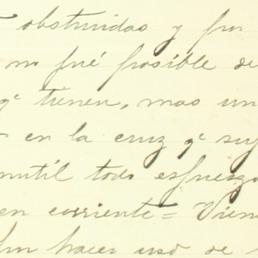 obstruidas y por
no fué posible de
qe tienen, mas un
en la cruz qe suj
inutil todo esfuerzo
en corriente = Vien
hacer uso de